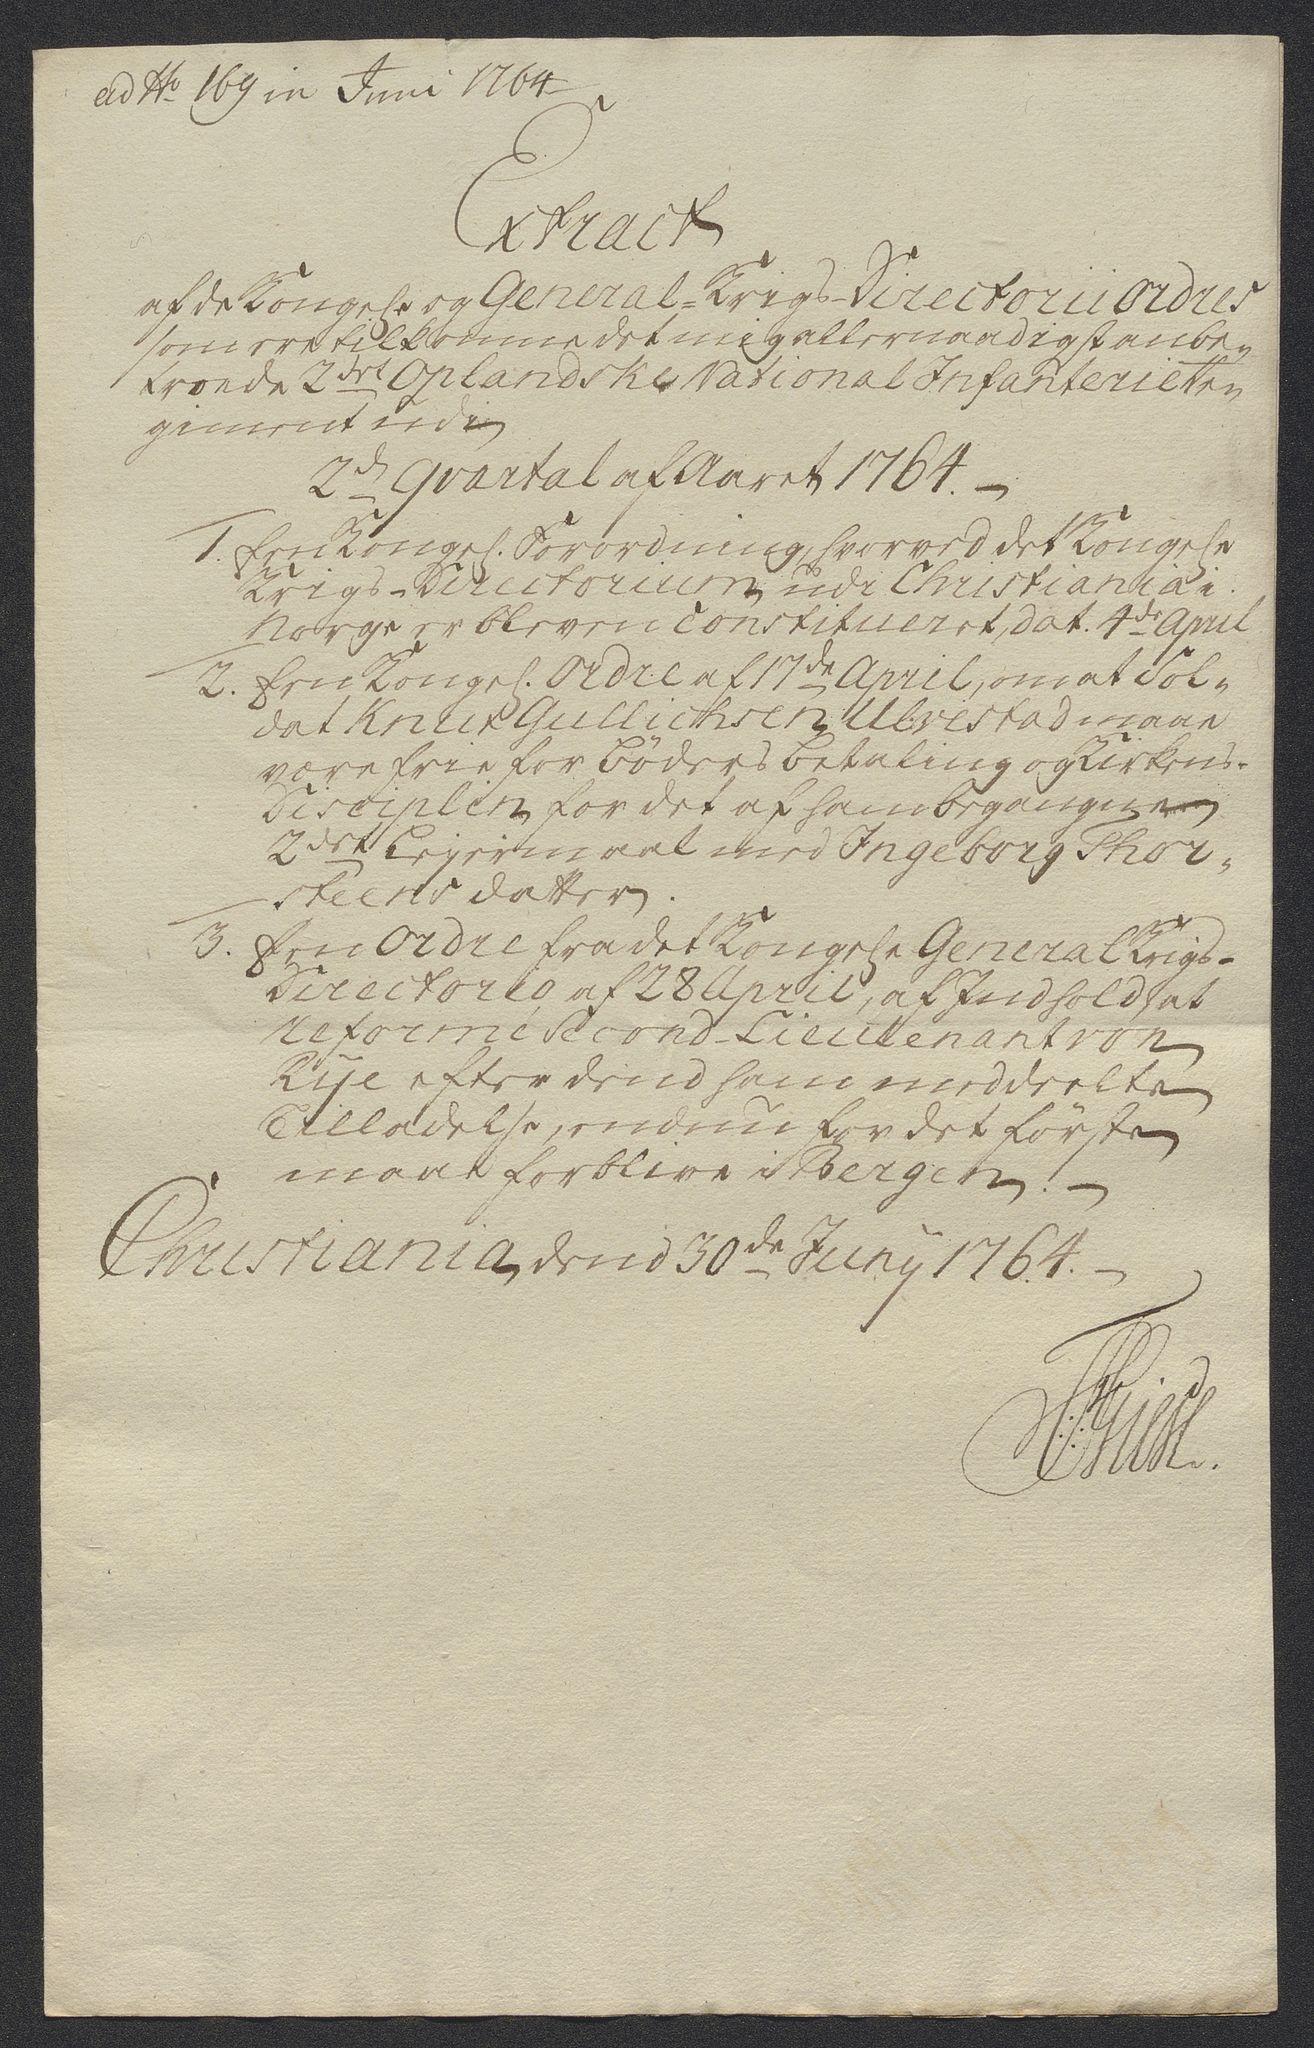 ad No 169 in Juni 1764
Extract
af de Kongel. og General-Krigs-Directorii Ordres
som ere tilkomne det mig allernaadigst anbe-
troede 2det Oplandske National Infanterie Re-
giment udi
2d Qvartal af Aaret 1764.
1. Een Kongel. Forordning, hvorved det Kongel.
Krigs-Directorium, udi Christiania i
Norge er bleven constitueret, dat. 4de April
2. Een Kongel. Ordre af 17de April, om at Sol-
dat Knut Gullichsen Ulvestad maae
være frie for Bøders betaling og Kirkens-
Disciplin for det af ham begangne
2det Leyermaal med Ingeborg Thor-
steens datter.
3. Een Ordre fra det Kongel. General Krigs-
Directorio af 28 April, af Indhold, at
reformé Second-Lieutenant von
Rije efter dend ham meddeelte
Tilladelse, endnu for det første
maae forblive i Bergen.
Christiania, dend 30de Junij 1764.